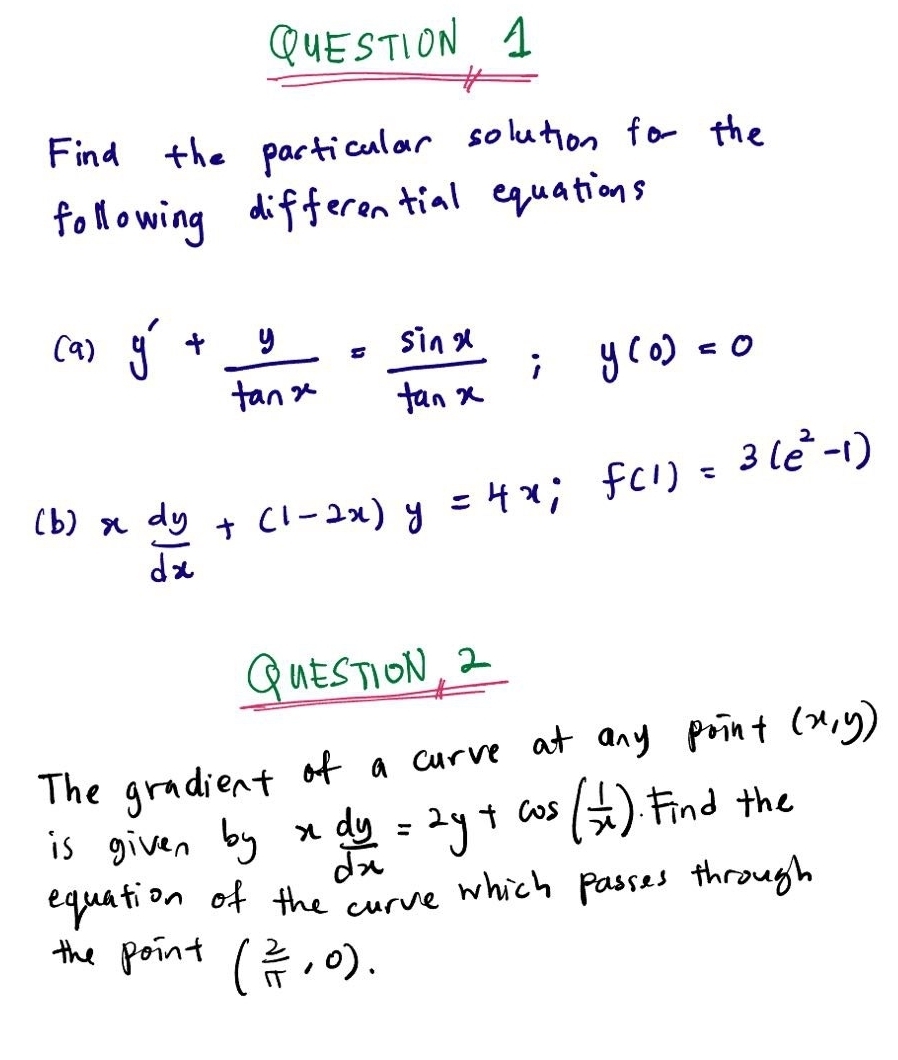 QUESTION 1
Find the particular solution for the
following differential equations
(a) y′ + y/tan x = sin x/tan x ; y(0) = 0
(b) x dy/dx + (1-2x) y = 4x; f(1) = 3(e²-1)
QUESTION 2
The gradient of a curve at any point (x,y)
is given by x dy/dx = 2y + cos (1/x). Find the
equation of the curve which passes through
the point (2/π, 0).